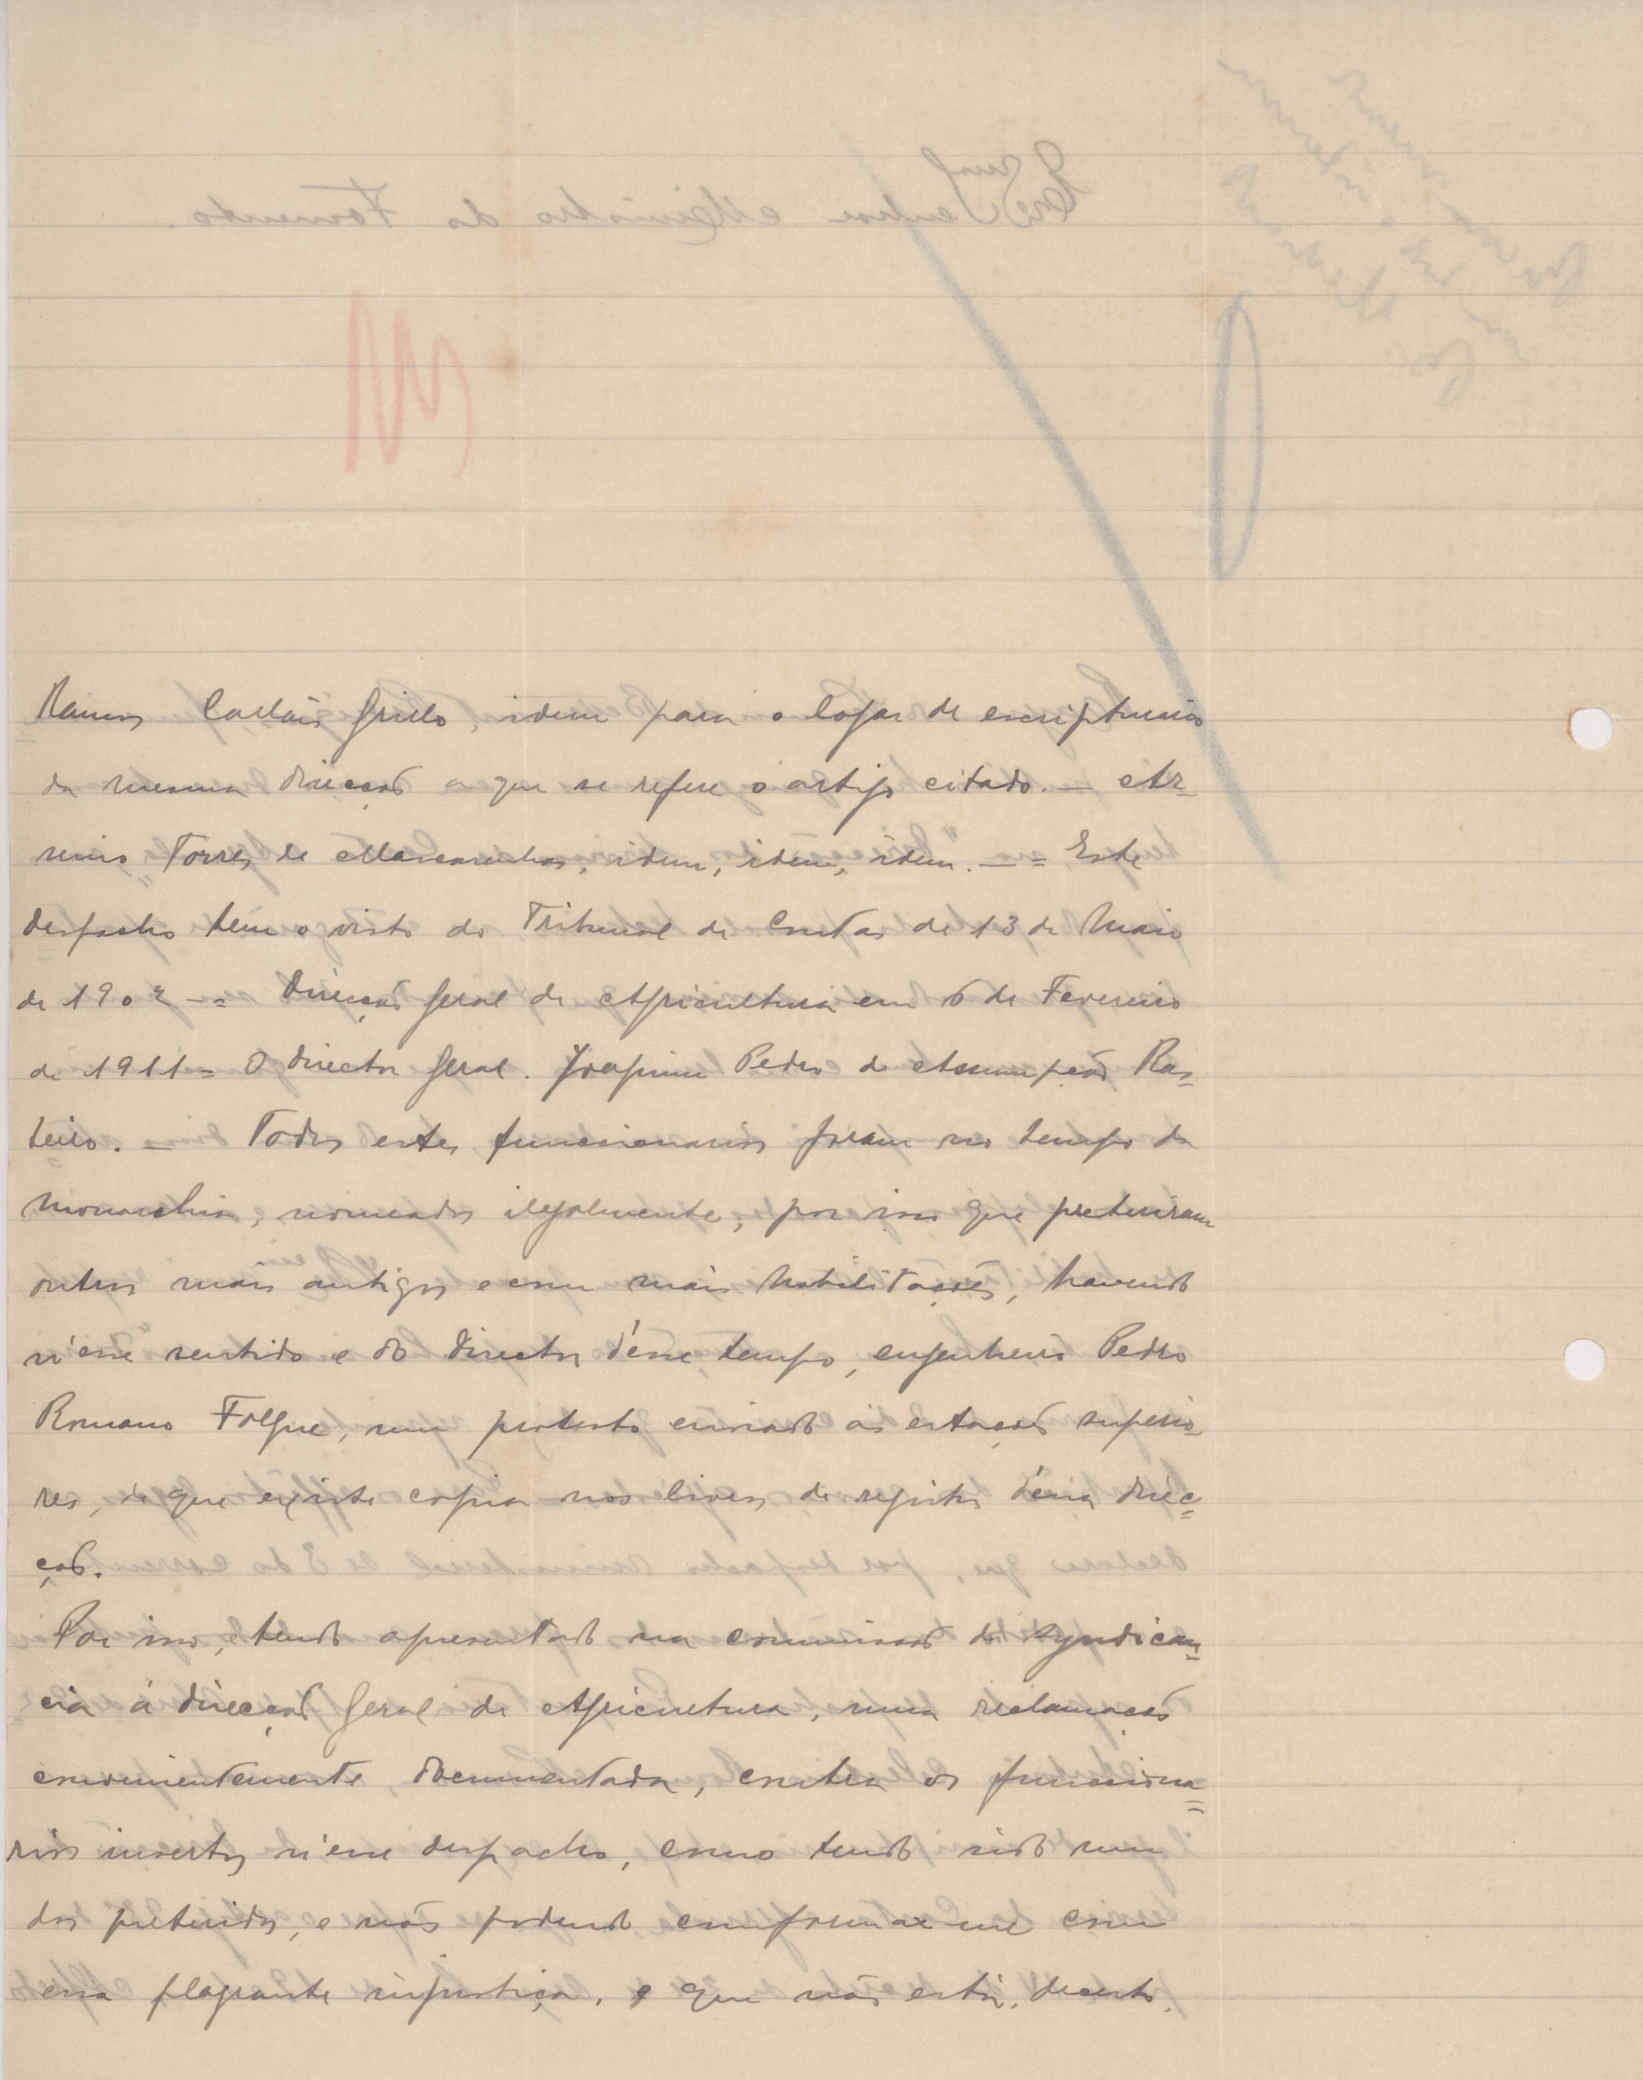 Ramos Callais Grillo, idem para o logar de escripturario
da mesma direcção a que se refere o artigo citado. — Ar=
minio Torres de Mascarenhas, idem, idem, idem. — = Este
despacho tem o visto do Tribunal de Contas de 13 de Maio
de 1902 — = Direcção Geral de Agricultura em 6 de Fevereiro
de 1911 = O Director Geral. Joaquim Pedro de Assumpção Ras=
teiro. — Todos estes funccionarios foram no tempo da
monarchia, nomeados ilegalmente, por isso que preteriram
outros mais antigos e com mais habilitações, havendo
n'esse sentido e do Director d'esse tempo, engenheiro Pedro
Romano Folque, um protesto enviado ás estações superio=
res, de que existe copia nos livros de registo d'essa direc=
ção.
Por isso, tendo apresentado na commissão de syndican=
cia á direcção Geral de Agricultura, uma reclamação
convenientemente documentada, contra os funcciona=
rios insertos n'esse despacho, como tendo sido um
dos preteridos, e não podendo conformar-me com
essa flagrante injustiça, e que não está, decerto,